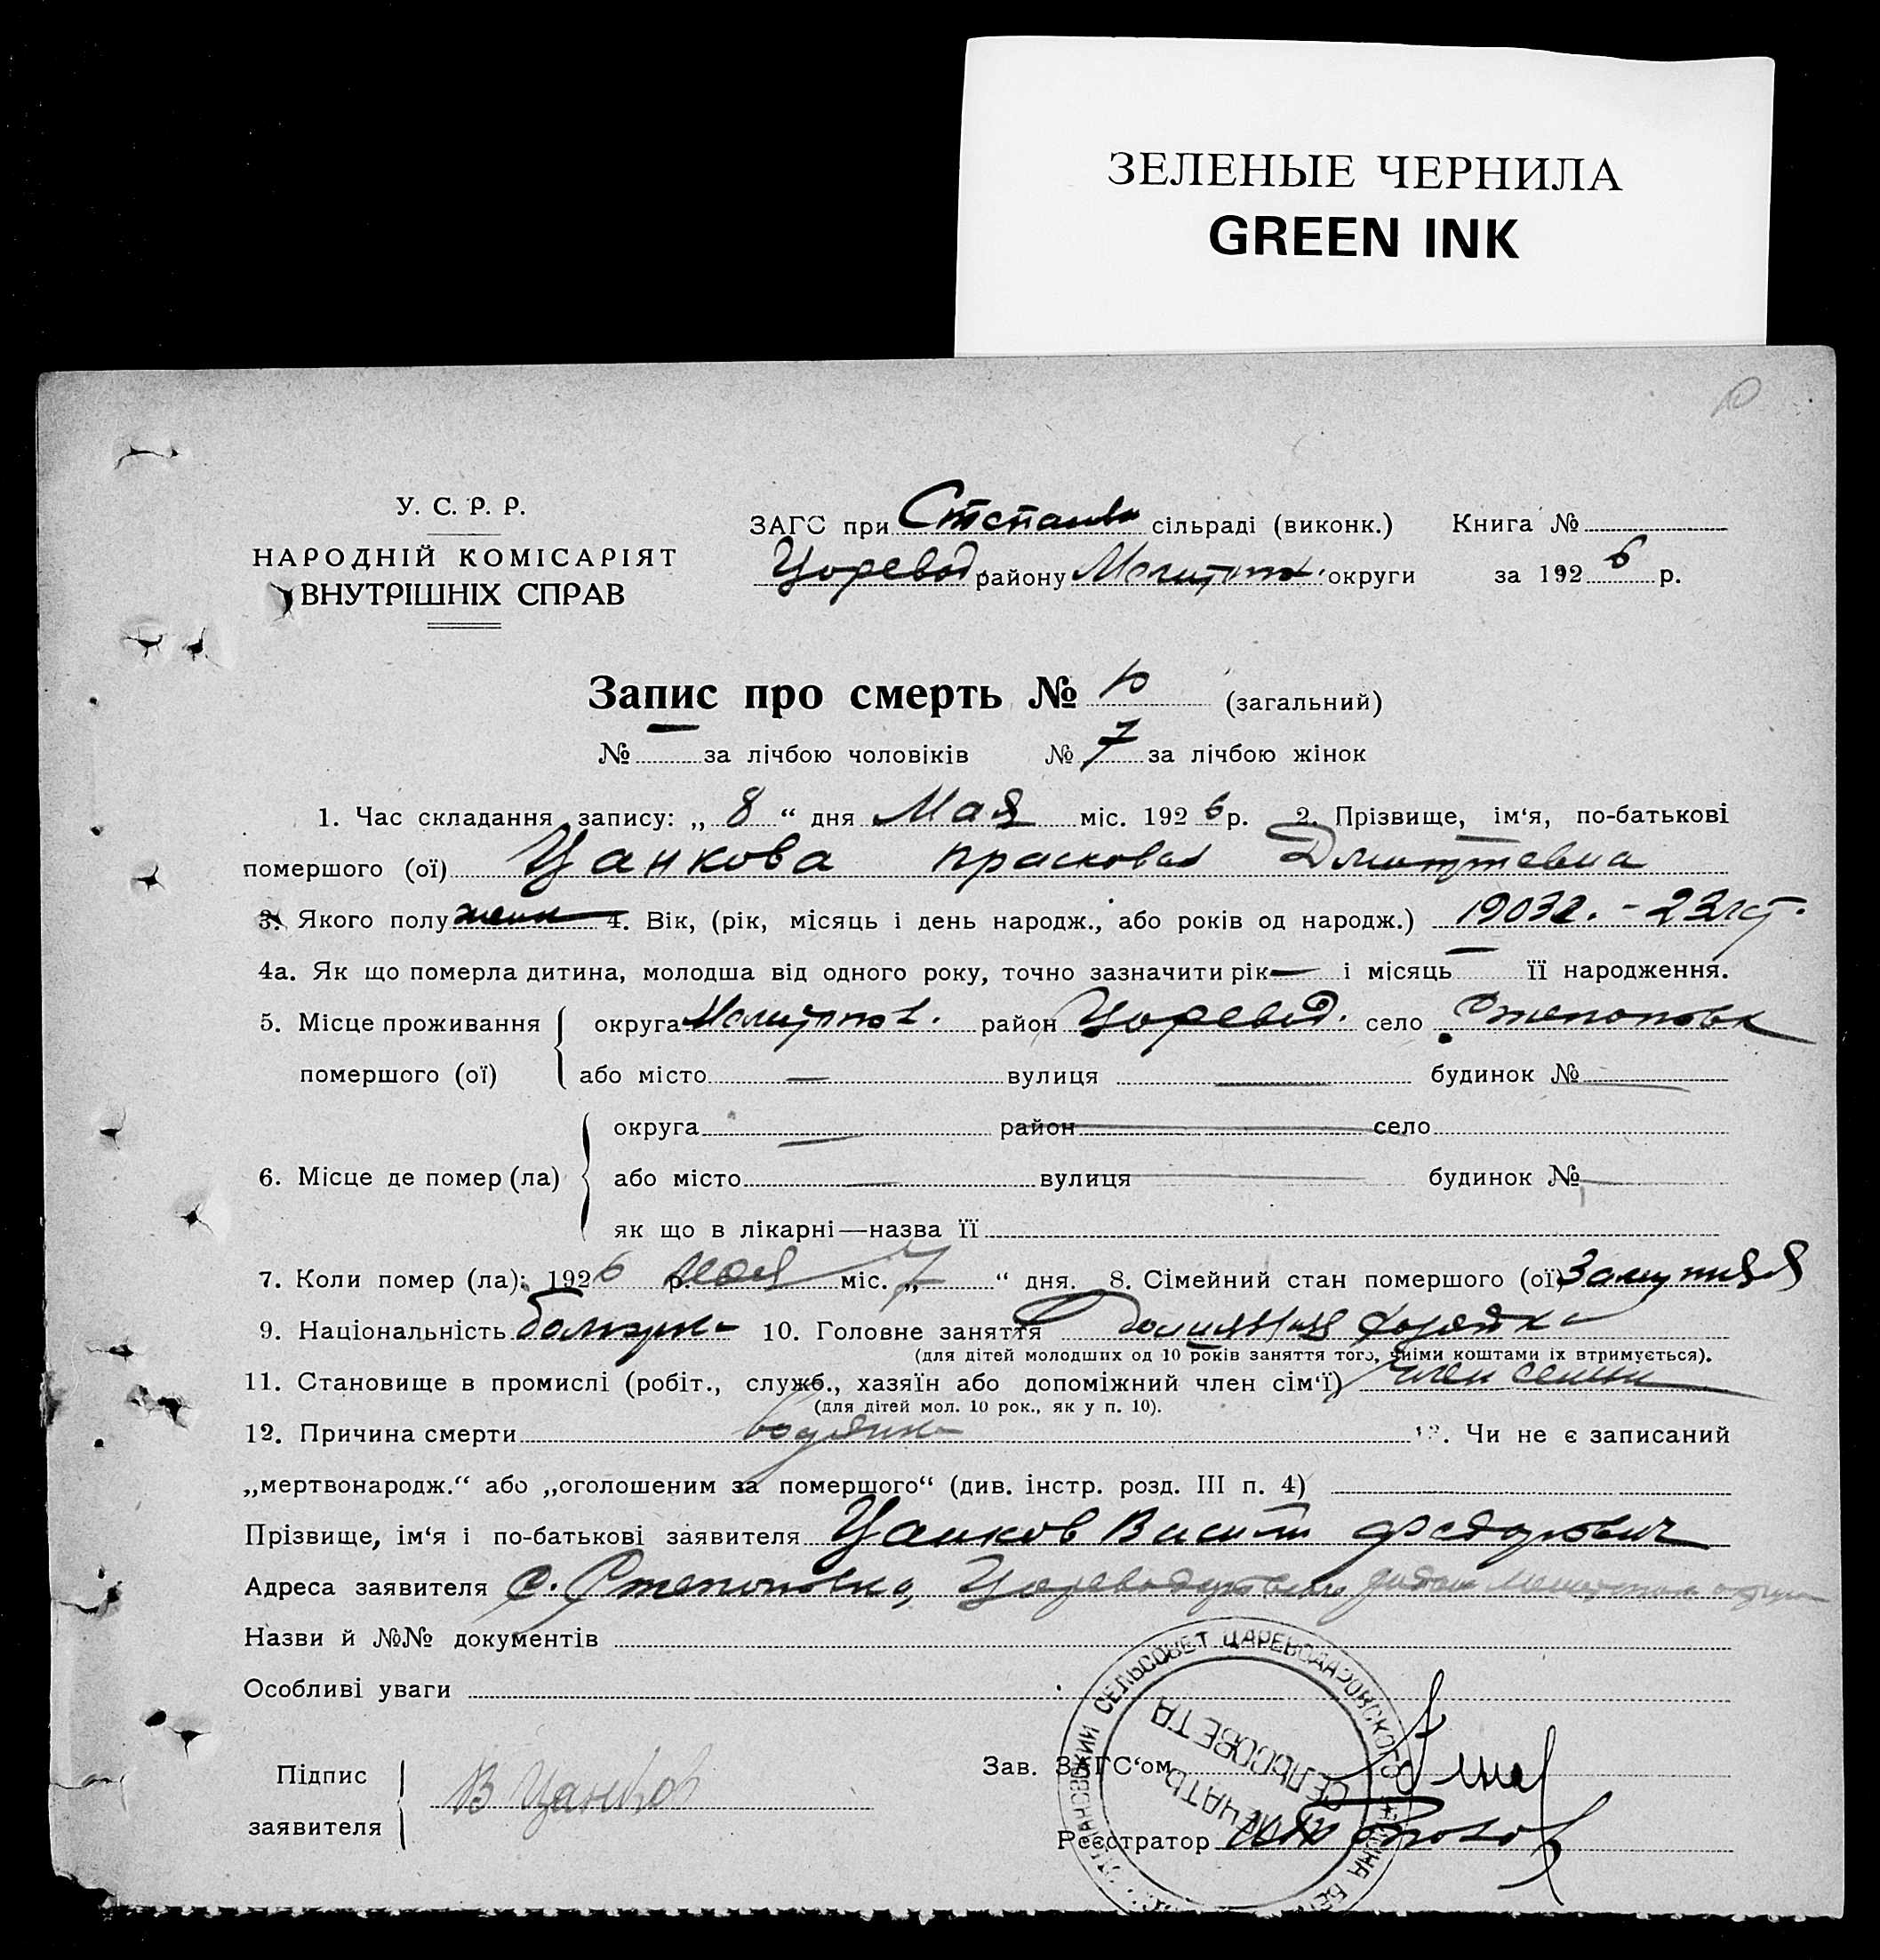 ЗЕЛЕНЫЕ ЧЕРНИЛА
GREEN INK
10
У. С. Р. Р.
НАРОДНІЙ КОМІСАРІЯТ
ВНУТРІШНІХ СПРАВ
ЗАГС при Степанов сільраді (виконк.) Книга №
Царевод району Мелитоп. округи за 1926 р.
Запис про смерть № 10 (загальний)
№ — за лічбою чоловіків № 7 за лічбою жінок
1. Час складання запису: „ 8 “ дня Мая міс. 1926 р. 2. Прізвище, ім‘я, по-батькові
помершого (ої) Цанкова Прасковья Дмитриевна
3. Якого полу жен 4. Вік, (рік, місяць і день народж., або років од народж.) 1903 г. - 23 лет.
4а. Як що померла дитина, молодша від одного року, точно зазначити рік — і місяць — її народження.
5. Місце проживання округа Мелитоп. район Царевод. село Степановк
помершого (ої) або місто — вулиця — будинок № —
округа — район — село
6. Місце де помер (ла) або місто — вулиця — будинок № —
як що в лікарні—назва її
7. Коли помер (ла): 1926 р. мая міс. „ 7 “ дня. 8. Сімейний стан помершого (ої) Замужняя
9. Національність болгарка 10. Головне заняття Домашняя хозяйка
(для дітей молодших од 10 років заняття того, чиїми коштами їх втримується).
11. Становище в промислі (робіт., служб., хазяїн або допоміжний член сім‘ї) член семьи
(для дітей мол. 10 рок., як у п. 10).
12. Причина смерти водянка 13. Чи не є записаний
„мертвонародж.“ або „оголошеним за помершого“ (див. інстр. розд. III п. 4)
Прізвище, ім‘я і по-батькові заявителя Цанков Василий Федорович
Адреса заявителя с. Степановка, Цареводаровского района Мелитопол округа
Назви й №№ документів
Особливі уваги
Підпис
заявителя В Цанков
Зав. ЗАГС‘ом
Реєстратор
СЕЛЬСОВЕТ ЦАРЕВОДАРОВСКОГО
ПЕЧАТЬ
СЕЛЬСОВЕТА